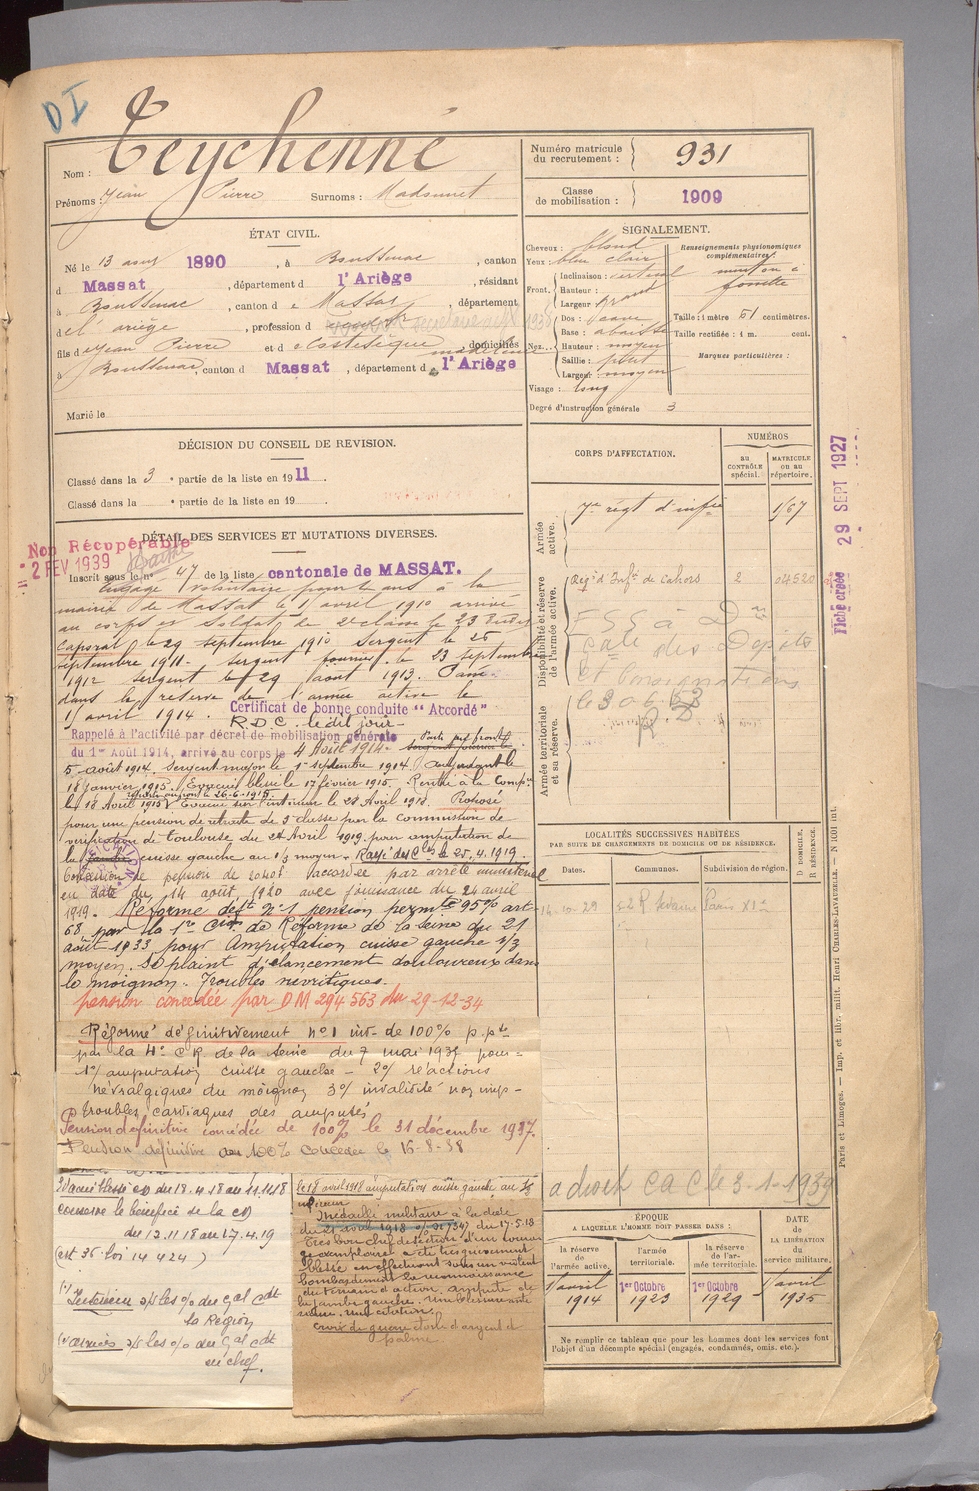 D I
Nom : Teychenné
Prénoms : Jean Pierre Surnoms : Madounet
Numéro matricule du recrutement : 931
Classe de mobilisation : 1909
ÉTAT CIVIL.
Né le 13 août 1890, à Boussenac, canton
d Massat, département d l'Ariège, résidant
à Boussenac, canton d e Massat, département
d e l'ariège, profession d
fils d e Jean Pierre et d e Castesèque madeleine, domiciliés
à Boussenac, canton d Massat, département d e l'Ariège
Marié le
SIGNALEMENT.
Cheveux : blond
Yeux : bleu clair
Front. Inclinaison : vertical
Hauteur :
Largeur : grand
Nez. Dos : cave
Base : abaissé
Hauteur : moyen
Saillie : petit
Largeur : moyen
Visage : long
Degré d'instruction générale 3
Renseignements physionomiques complémentaires :
menton à
fossette
Taille : 1 mètre 51 centimètres.
Taille rectifiée : 1 m. cent.
Marques particulières :
DÉCISION DU CONSEIL DE REVISION.
Classé dans la 3e partie de la liste en 1911.
Classé dans la e partie de la liste en 19 .
DÉTAIL DES SERVICES ET MUTATIONS DIVERSES.
Non Récupérable
2 FEV 1939
Inscrit sous le n° 47 de la liste cantonale de MASSAT.
Engagé volontaire pour ans à la
mairie de Massat le 1 avril 1910 arrivé
au corps et Soldat de 2e classe le 23 dudit
Caporal le 29 septembre 1910 Sergent le 25
septembre 1911. sergent fourrier le 23 septembre
1912 sergent le 29 août 1913. Passé
dans la réserve de l'armée active le
1 avril 1914. Certificat de bonne conduite "Accordé"
R.D.C. le dit jour
Rappelé à l'activité par décret de mobilisation générale
du 1er Août 1914, arrivé au corps le 4 Août 1914. Parti au front
5 août 1914. Sergent major le 1er septembre 1914 Adjudant le
18 janvier 1915. Evacué blessé le 17 février 1915. Rentré à la Compie
le 18 Avril 1915 reparti au front le 26-6-1915. Evacué sur l'intérieur le 28 Avril 1918. Proposé
pour une pension de retraite de 3e classe par la commission de
vérification de Toulouse du 24 Avril 1919 pour amputation de
la cuisse gauche au 1/3 moyen. Rayé des Cles le 25.4.1919.
Concession de pension de accordée par arrêté ministériel
en date du 14 août 1920 avec jouissance du 24 avril
1919. Réforme déft N°1 pension permte 95% art
68 par la 1re Cion de Réforme de la Seine du 21
août 1933 pour Amputation cuisse gauche 1/3
moyen. Se plaint d'élancement douloureux dans
le moignon. Troubles névritiques.
pension concédée par DM 294 563 du 29-12-34
Réformé définitivement N°1 inv. de 100% p.pte
par la 4e C R de la Seine du 7 mai 1937 pour :
1°/ amputation cuisse gauche - 2°/ réactions
névralgiques du moignon 3°/ invalidité non imp -
troubles cardiaques des amputés
Pension définitive concédée de 100% le 31 décembre 1937.
Pension définitive au 100% concédée le 16-8-38
Evacué blessé CD du 18.4.18 au 11.11.18
conserve le bénéfice de la CD
du 12.11.18 au 27.4.19
(art 36 loi 14 4 24)
Intérieur s/s les o/o du Gal Cdt
la Région
Armées s/s les o/o du Gal Cdt
en chef.
le 18 avril 1918 amputation cuisse gauche au 1/3
Médaille militaire à la date
du 21 avril 1918 o/ N° 7347 du 17.5.18
Très bon chef de section d'un courage
exemplaire a été très grièvement
blessé en effectuant sous un violent
bombardement la reconnaissance
du terrain d'action. amputé de
la jambe gauche. Une blessure antérieure.
une citation.
Croix de guerre étoile d'argent et
palme.
CORPS D'AFFECTATION.
NUMÉROS
au CONTRÔLE spécial.
MATRICULE ou au répertoire.
Armée active.
7e régt d'infie 1167
Disponibilité et réserve de l'armée active.
Régt d'Infie de Cahors 2 04520
FSS à Don
Cale des Dépôts
et Consignations
Armée territoriale et sa réserve.
Fiche créée 29 SEPT 1927
LOCALITÉS SUCCESSIVES HABITÉES
PAR SUITE DE CHANGEMENTS DE DOMICILE OU DE RÉSIDENCE.
Dates. Communes. Subdivision de région. D DOMICILE. R RÉSIDENCE.
14-10-29 Paris XIe
a droit CA C le 3-1-1939
ÉPOQUE
A LAQUELLE L'HOMME DOIT PASSER DANS :
la réserve de l'armée active. l'armée territoriale. la réserve de l'armée territoriale.
DATE de LA LIBÉRATION du service militaire.
1 avril 1914
1er Octobre 1923
1er Octobre 1929
1 avril 1935
Ne remplir ce tableau que pour les hommes dont les services font
l'objet d'un décompte spécial (engagés, condamnés, omis, etc.).
Paris et Limoges. — Imp. et libr. milit. Henri CHARLES-LAVAUZELLE. — N° 1001 int.